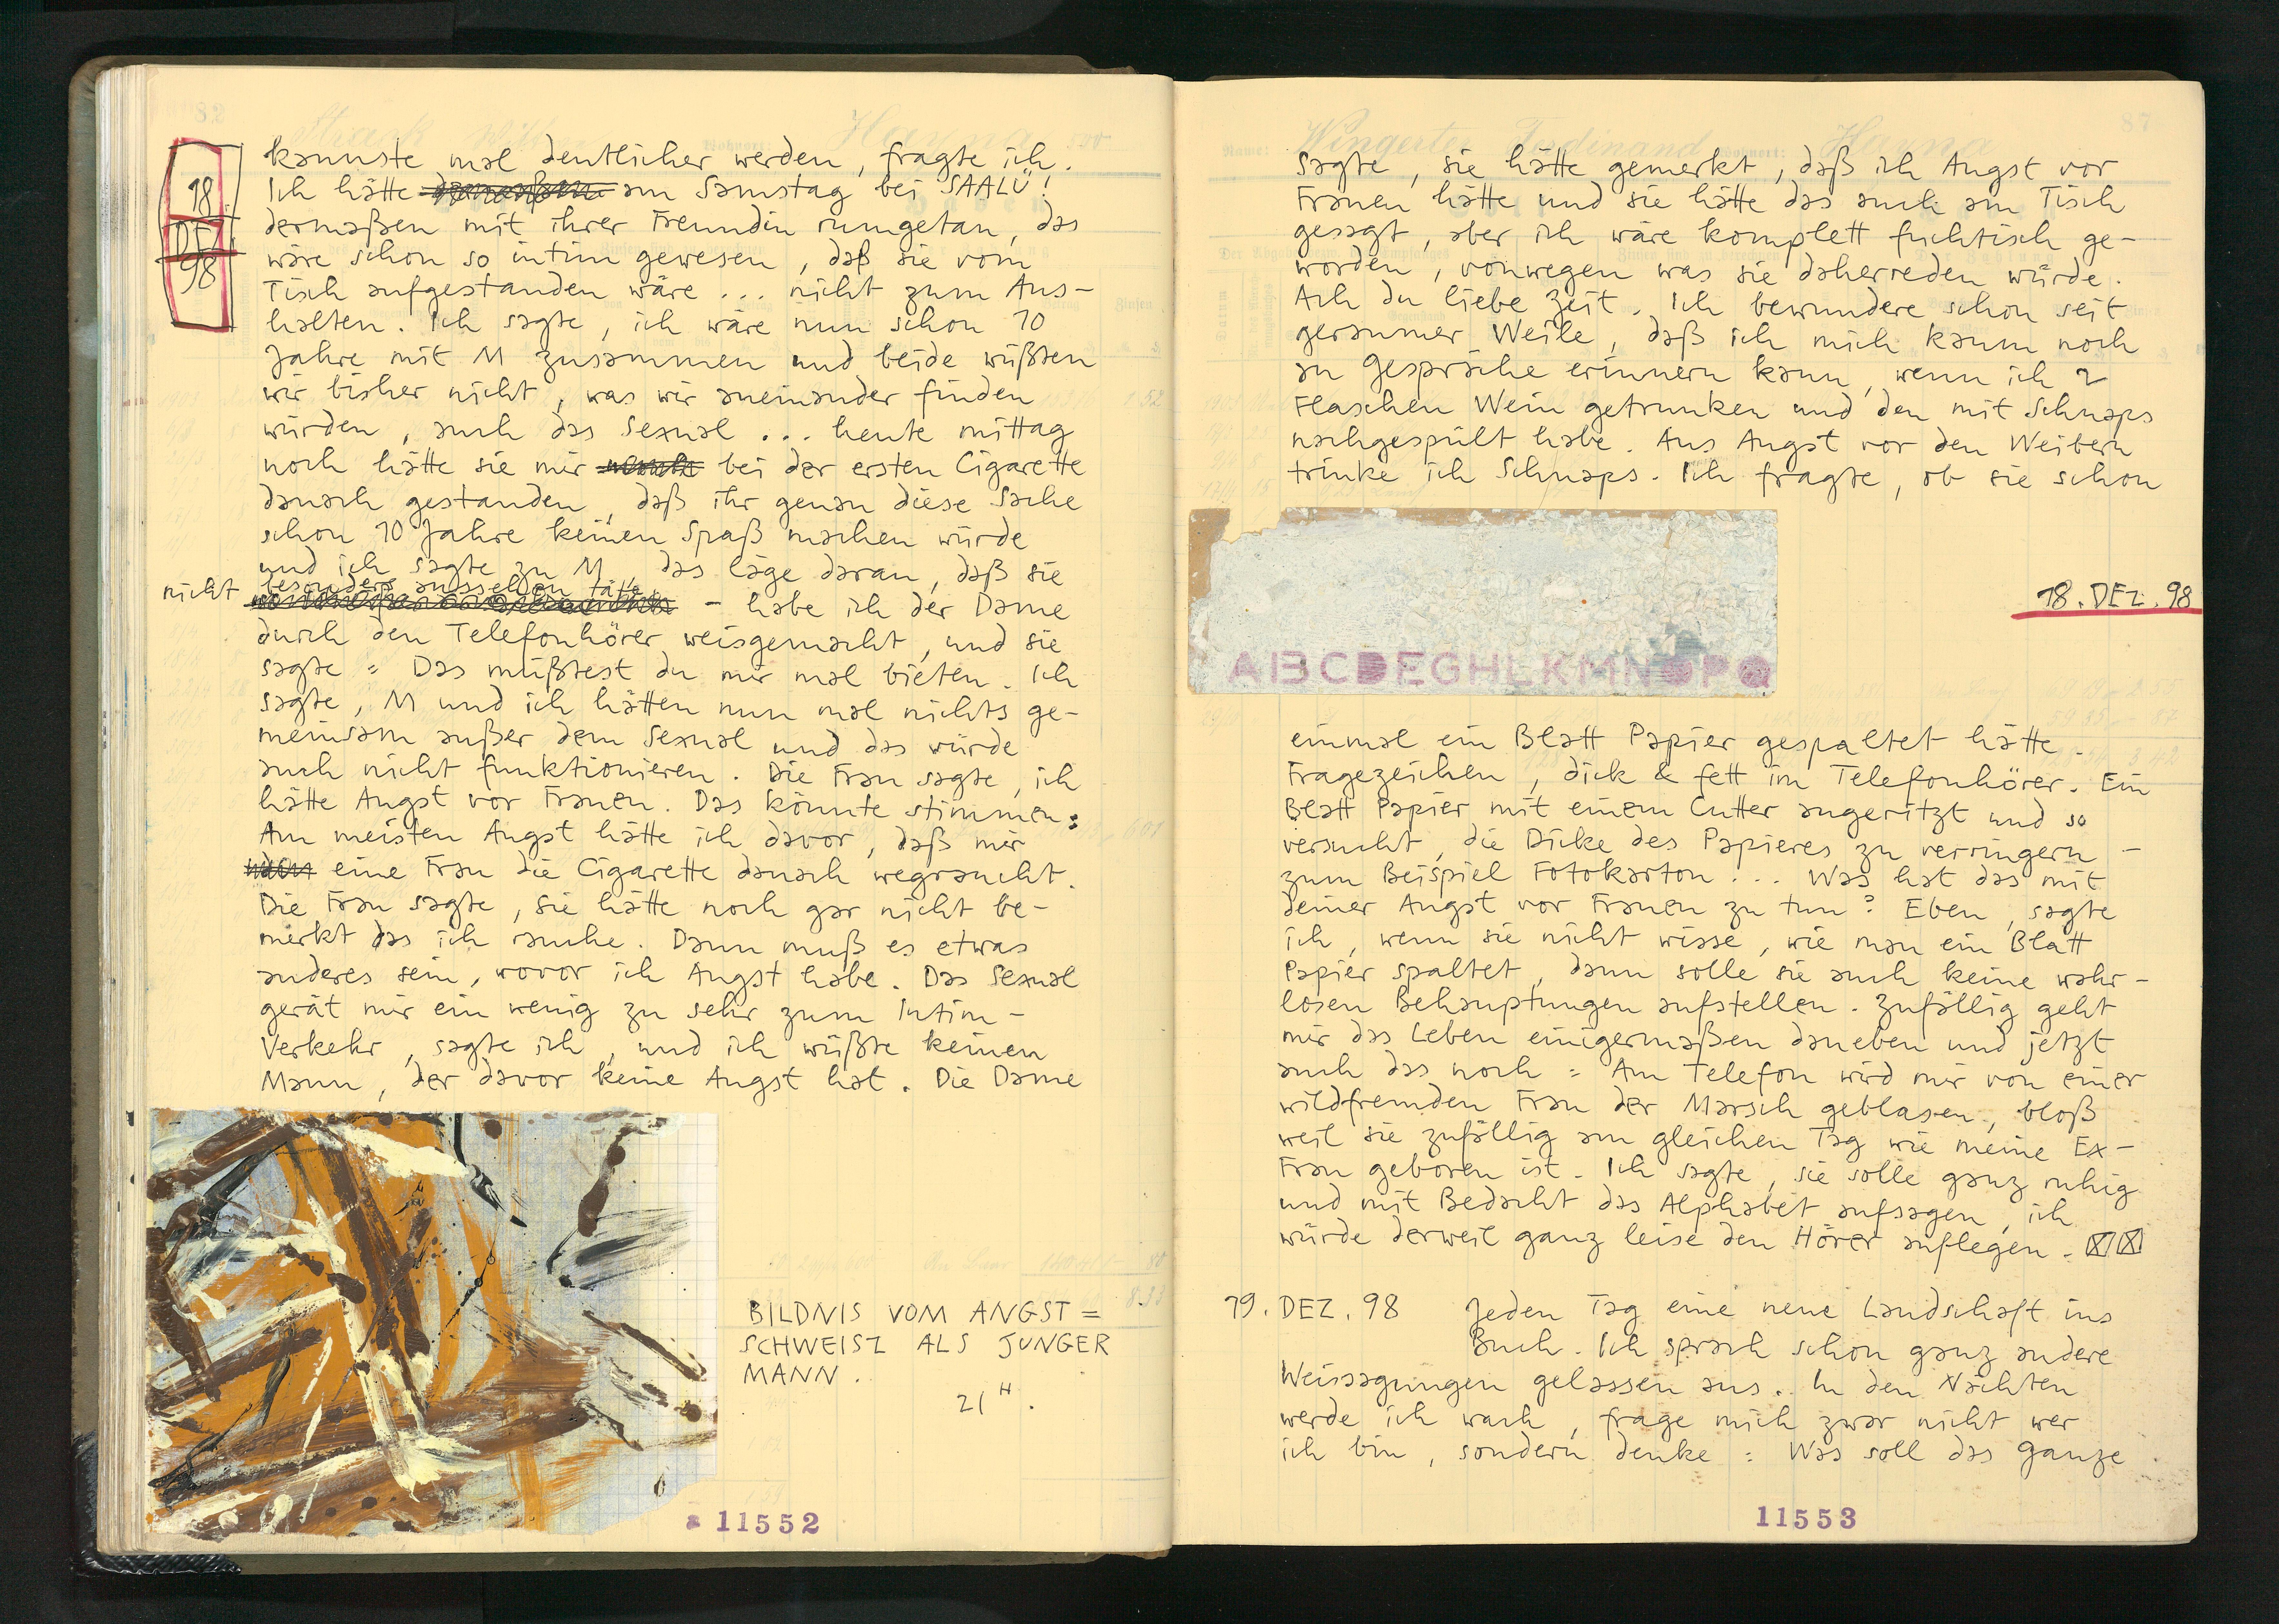 18.
DEZ.
98
kannste mal deutlicher werden, fragte ich.
Ich hätte am Samstag bei SAALÜ!
dermaßen mit ihrer Freundin rumgetan, das
wäre schon so intim gewesen, daß sie vom
Tisch aufgestanden wäre ... nicht zum Aus-
halten. Ich sagte, ich wäre nun schon 10
Jahre mit M zusammen und beide wüßten
wir bisher nicht, was wir aneinander finden
würden, auch das Sexual ... heute mittag
noch hätte sie mir bei der ersten Cigarette
danach gestanden, daß ihr genau diese Sache
schon 10 Jahre keinen Spaß machen würde
und ich sagte zu M, das läge daran, daß sie
nicht besonders aussehen täte - habe ich der Dame
durch den Telefonhörer weisgemacht, und sie
sagte = Das müßtest du mir mal bieten. Ich
sagte, M und ich hätten nun mal nichts ge-
meinsam außer dem Sexual und das würde
auch nicht funktionieren. Die Frau sagte, ich
hätte Angst vor Frauen. Das könnte stimmen:
Am meisten Angst hätte ich davor, daß mir
eine Frau die Cigarette danach wegraucht.
Die Frau sagte, sie hätte noch gar nicht be-
merkt das ich rauche. Dann muß es etwas
anderes sein, wovor ich Angst habe. Das Sexual
gerät mir ein wenig zu sehr zum Intim-
Verkehr, sagte ich, und ich wüßte keinen
Mann, der davor keine Angst hat. Die Dame
BILDNIS VOM ANGST=
SCHWEISZ ALS JUNGER
MANN.
21 H.
11552
Wingerter Ferdinand Hayna
87
sagte, sie hätte gemerkt, daß ich Angst vor
Frauen hätte und sie hätte das auch am Tisch
gesagt, aber ich wäre komplett fuchtisch ge-
worden, vonwegen was sie daherreden würde.
Ach du liebe Zeit. Ich bewundere schon seit
geraumer Weile, daß ich mich kaum noch
an Gespräche erinnern kann, wenn ich 2
Flaschen Wein getrunken und den mit Schnaps
nachgespült habe. Aus Angst vor den Weibern
trinke ich Schnaps. Ich fragte, ob sie schon
18. DEZ. 98
ABCDEGHLKMNOPQ
einmal ein Blatt Papier gespaltet hätte.
Fragezeichen, dick & fett im Telefonhörer. Ein
Blatt Papier mit einem Cutter angeritzt und so
versucht, die Dicke des Papieres zu verringern -
zum Beispiel Fotokarton ... Was hat das mit
deiner Angst vor Frauen zu tun? Eben, sagte
ich, wenn sie nicht wisse, wie man ein Blatt
Papier spaltet, dann solle sie auch keine wahr-
losen Behauptungen aufstellen. Zufällig geht
mir das Leben einigermaßen daneben und jetzt
auch das noch = Am Telefon wird mir von einer
wildfremden Frau der Marsch geblasen, bloß
weil sie zufällig am gleichen Tag wie meine Ex-
Frau geboren ist. Ich sagte, sie solle ganz ruhig
und mit Bedacht das Alphabet aufsagen, ich
würde derweil ganz leise den Hörer auflegen.
19. DEZ. 98 Jeden Tag eine neue Landschaft ins
Buch. Ich sprach schon ganz andere
Weissagungen gelassen aus. In den Nächten
werde ich wach, frage mich zwar nicht wer
ich bin, sondern denke: Was soll das Ganze
11553